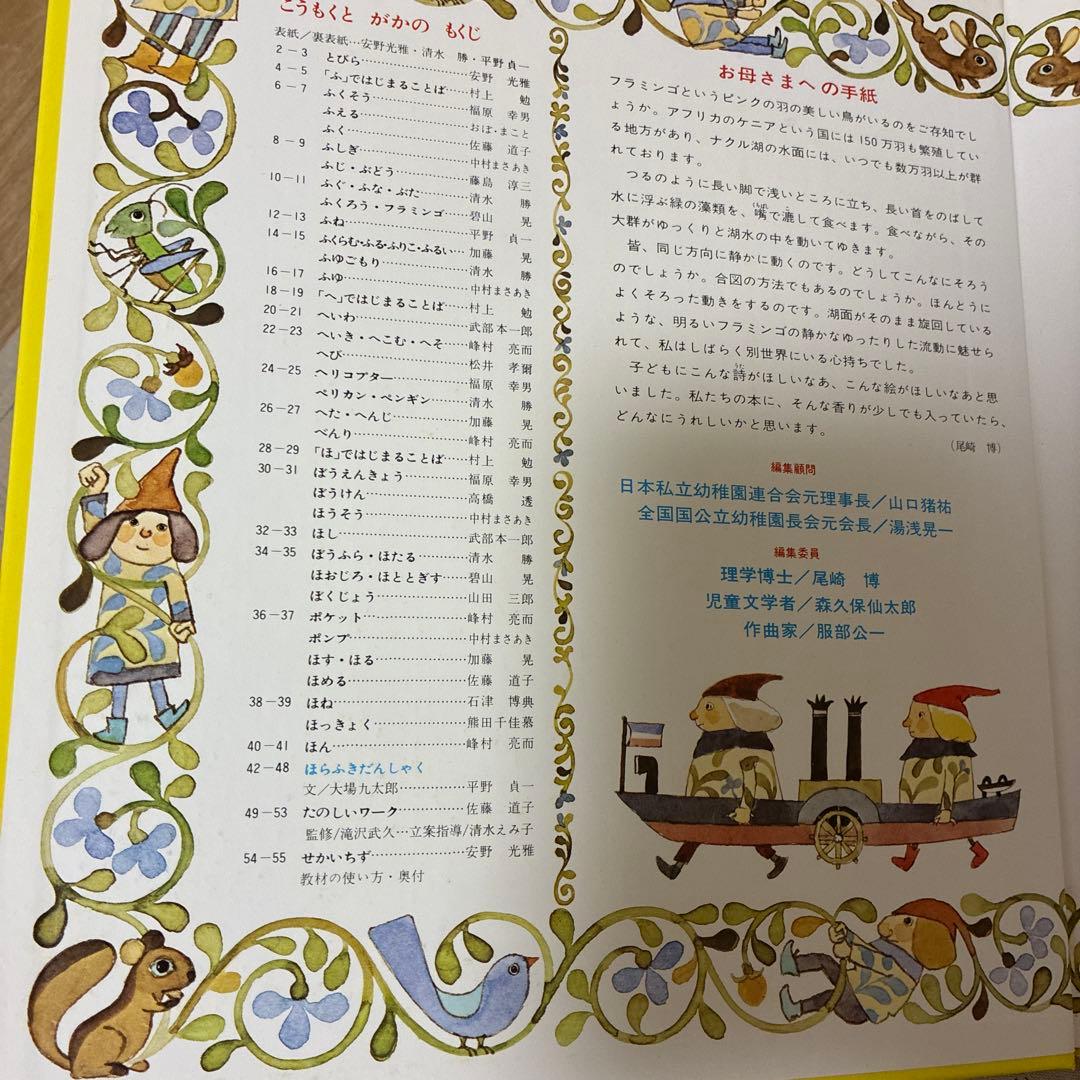 こうもくと がかの もくじ
表紙／裏表紙…安野光雅・清水 勝・平野貞一
2－3 とびら…………安野 光雅
4－5 「ふ」ではじまることば…村上 勉
6－7 ふくそう…………福原 幸男
ふえる…………おぼ・まこと
ふく…………佐藤 道子
8－9 ふしぎ…………中村まさあき
ふじ・ぶどう…………藤島 淳三
10－11 ふぐ・ふな・ぶた…………清水 勝
ふくろう・フラミンゴ……碧山 晃
12－13 ふね…………平野 貞一
14－15 ふくらむ・ふる・ふりこ・ふるい…加藤 晃
ふゆごもり…………清水 勝
16－17 ふゆ…………中村まさあき
18－19 「へ」ではじまることば…村上 勉
20－21 へいわ…………武部本一郎
22－23 へいき・へこむ・へそ…峰村 亮而
へび…………松井 孝爾
24－25 ヘリコプター…………福原 幸男
ペリカン・ペンギン………清水 勝
26－27 へた・へんじ…………加藤 晃
べんり…………峰村 亮而
28－29 「ほ」ではじまることば…村上 勉
30－31 ぼうえんきょう…………福原 幸男
ぼうけん…………高橋 透
ほうそう…………中村まさあき
32－33 ほし…………武部本一郎
34－35 ぼうふら・ほたる………清水 勝
ほおじろ・ほととぎす……碧山 晃
ぼくじょう…………山田 三郎
36－37 ポケット…………峰村 亮而
ポンプ…………中村まさあき
ほす・ほる…………加藤 晃
ほめる…………佐藤 道子
38－39 ほね…………石津 博典
ほっきょく…………熊田千佳慕
40－41 ほん…………峰村 亮而
42－48 ほらふきだんしゃく
文／大場九太郎…………平野 貞一
49－53 たのしいワーク…………佐藤 道子
監修／滝沢武久…立案指導／清水えみ子
54－55 せかいちず…………安野 光雅
教材の使い方・奥付
お母さまへの手紙
フラミンゴというピンクの羽の美しい鳥がいるのをご存知でし
ょうか。アフリカのケニアという国には150万羽も繁殖してい
る地方があり、ナクル湖の水面には、いつでも数万羽以上が群
れております。
つるのように長い脚で浅いところに立ち、長い首をのばして
水に浮ぶ緑の藻類を、嘴で漉して食べます。食べながら、その
大群がゆっくりと湖水の中を動いてゆきます。
皆、同じ方向に静かに動くのです。どうしてこんなにそろう
のでしょうか。合図の方法でもあるのでしょうか。ほんとうに
よくそろった動きをするのです。湖面がそのまま旋回している
ような、明るいフラミンゴの静かなゆったりした流動に魅せら
れて、私はしばらく別世界にいる心持ちでした。
子どもにこんな詩がほしいなあ、こんな絵がほしいなあと思
いました。私たちの本に、そんな香りが少しでも入っていたら、
どんなにうれしいかと思います。
（尾崎 博）
編集顧問
日本私立幼稚園連合会元理事長／山口猪祐
全国国公立幼稚園長会元会長／湯浅晃一
編集委員
理学博士／尾崎 博
児童文学者／森久保仙太郎
作曲家／服部公一